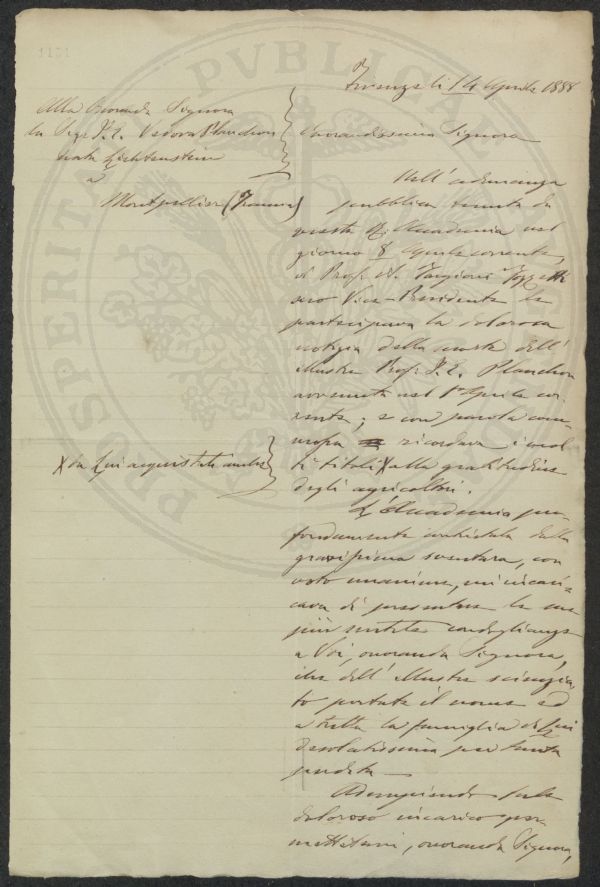 1131
PROSPERITATI PUBLICAE
Firenze li 14 Aprile 1888
Alla Onoranda Signora
la Sigra J. E. Vedova Planchon
nata Lichtenstein
a
Montpellier (Francia)
Onorandissima Signora
Nell'adunanza
pubblica tenuta da
questa R. Accademia nel
giorno 8 Aprile corrente,
il Prof. A. Targioni Tozzetti
suo Vice-Presidente le
partecipava la dolorosa
notizia della morte dell'
illustre Prof. J. E. Planchon
avvenuta nel 1° Aprile cor
rente; e con parola com
mossa ricordava i molti
titoli X alla gratitudine
degli agricoltori.
X da Lui acquistati anche
L'Accademia pro
fondamente
gravissima sventura, con
voto unanime, mi incari
cava di presentare le sue
più sentite condoglianze
a Voi, onoranda Signora,
che dell'illustre scienzia
to portate il nome ed
a tutta la famiglia di Lui
desolatissima per tanta
perdita.
Adempiendo tale
doloroso incarico per
mettetemi, onoranda Signora,